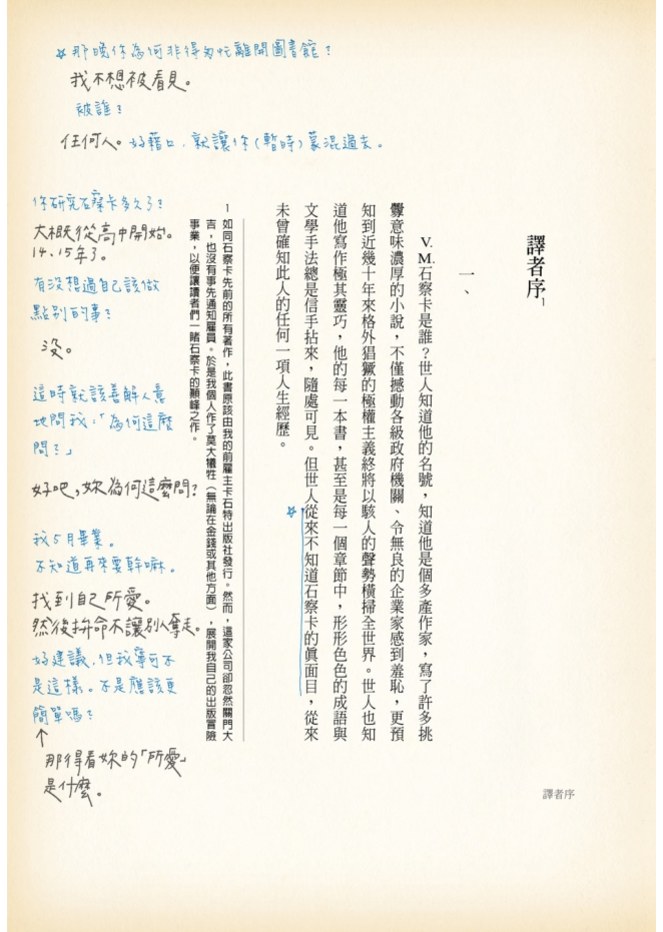 ☆那晚你為何非得匆忙離開圖書館?
我不想被看見。
被誰?
任何人。好藉口,就讓你(暫時)蒙混過去。
譯者序1
一、
V.M.石察卡是誰?世人知道他的名號,知道他是個多產作家,寫了許多挑
釁意味濃厚的小說,不僅撼動各級政府機關、令無良的企業家感到羞恥,更預
知到近幾十年來格外猖獗的極權主義終將以駭人的聲勢橫掃全世界。世人也知
道他寫作極其靈巧,他的每一本書,甚至是每一個章節中,形形色色的成語與
文學手法總是信手拈來,隨處可見。但世人☆從來不知道石察卡的真面目,從來
未曾確知此人的任何一項人生經歷。
1 如同石察卡先前的所有著作,此書原該由我的前雇主卡石特出版社發行。然而,這家公司卻忽然關門大
言,也沒有事先通知雇員。於是我個人作了莫大犧牲(無論在金錢或其他方面),展開我自己的出版冒險
事業,以便讓讀者們一睹石察卡的顛峰之作。
你研究石察卡多久了?
大概從高中開始。
14、15年了。
有沒想過自己該做
點別的事?
沒。
這時就該善解人意
地問我:「為何這麼
問?」
好吧,妳為何這麼問?
我5月畢業。
不知道再來要幹嘛。
找到自己所愛。
然後拚命不讓別人奪走。
好建議,但我寧可不
是這樣。不是應該更
簡單嗎?
↑
那得看妳的「所愛」
是什麼。
譯者序